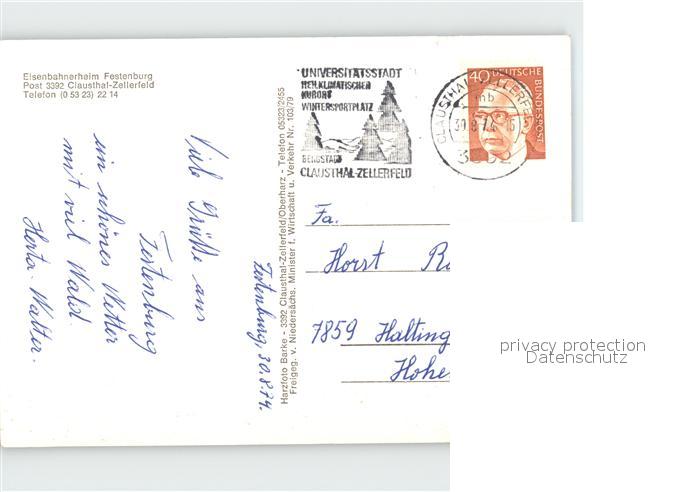 Eisenbahnerheim Festenburg
Post 3392 Clausthal-Zellerfeld
Telefon (0 53 23) 22 14
Viele Grüße aus
Festenburg
ein schönes Wetter
mit viel Wald.
Herta. Walter.
Festenburg, 30.8.74.
Harzfoto Barke - 3392 Clausthal-Zellerfeld/Oberharz - Telefon 05323/2455
Freigeg. v. Niedersächs. Minister f. Wirtschaft u. Verkehr Nr. 103/79
UNIVERSITÄTSSTADT
HEILKLIMATISCHER
KURORT
WINTERSPORTPLATZ
BERGSTADT
CLAUSTHAL-ZELLERFELD
CLAUSTHAL-ZELLERFELD
mb
30.8.74-15
3392
40 DEUTSCHE
BUNDESPOST
Fa.
Horst
7859 Halting
Hohe
privacy protection
Datenschutz